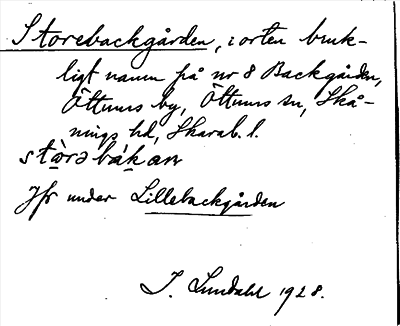 Storebackgården, i orten bruk-
ligt namn på nr 8 Backgården,
Öttums by, Öttums sn, Skå-
nings hd, Skarab. l.
stòrə bák an
Jfr under Lillebackgården
I. Lundahl 1928.